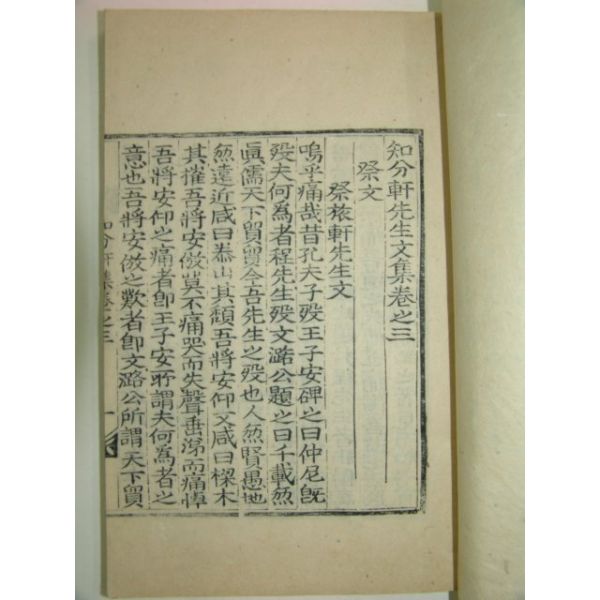 知分軒先生文集卷之三
祭文
祭旅軒先生文
嗚乎痛哉昔孔夫子歿王子安碑之曰仲尼旣
歿夫何爲者程先生歿文潞公題之曰千載無
眞儒天下貿貿今吾先生之歿也人無賢愚地
無遠近咸曰泰山其頹吾將安仰又咸曰樑木
其摧吾將安倣莫不痛哭而失聲垂涕而痛悼
吾將安仰之痛者卽王子安所謂夫何爲者之
意也吾將安倣之歎者卽文潞公所謂天下貿
知分軒集卷之三